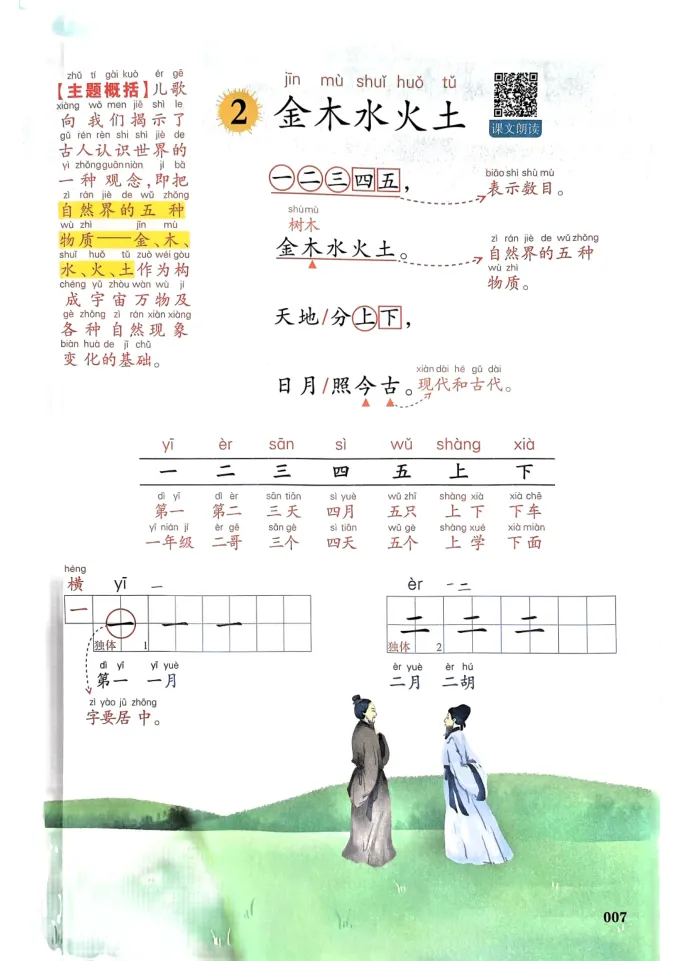 zhǔ tí gài kuò ér gē
【主题概括】儿歌
xiàng wǒ men jiē shì le
向我们揭示了
gǔ rén rèn shi shì jiè de
古人认识世界的
yì zhǒng guān niàn jí bǎ
一种观念,即把
zì rán jiè de wǔ zhǒng
自然界的五种
wù zhì jīn mù
物质——金、木、
shuǐ huǒ tǔ zuò wéi gòu
水、火、土作为构
chéng yǔ zhòu wàn wù jí
成宇宙万物及
gè zhǒng zì rán xiàn xiàng
各种自然现象
biàn huà de jī chǔ
变化的基础。
jīn mù shuǐ huǒ tǔ
2 金木水火土
课文朗读
一二三四五,
biǎo shì shù mù
表示数目。
shù mù
树木
金木水火土。
zì rán jiè de wǔ zhǒng
自然界的五种
wù zhì
物质。
天地/分上下,
日月/照今古。
xiàn dài hé gǔ dài
现代和古代。
yī èr sān sì wǔ shàng xià
一 二 三 四 五 上 下
dì yī dì èr sān tiān sì yuè wǔ zhī shàng xià xià chē
第一 第二 三天 四月 五只 上下 下车
yī nián jí èr gē sān gè sì tiān wǔ gè shàng xué xià miàn
一年级 二哥 三个 四天 五个 上学 下面
héng
横 yī 一
一 一 一 一
独体 1
dì yī yī yuè
第一 一月
zì yào jū zhōng
字要居中。
èr 一 二
二 二 二
独体 2
èr yuè èr hú
二月 二胡
007